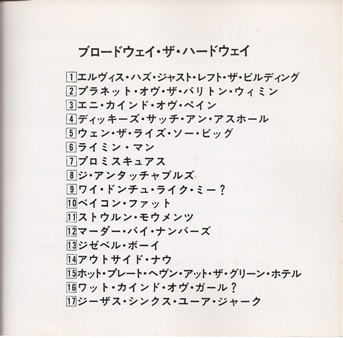 ブロードウェイ・ザ・ハードウェイ
1 エルヴィス・ハズ・ジャスト・レフト・ザ・ビルディング
2 プラネット・オヴ・ザ・バリトン・ウィミン
3 エニ・カインド・オヴ・ペイン
4 ディッキーズ・サッチ・アン・アスホール
5 ウェン・ザ・ライズ・ソー・ビッグ
6 ライミン・マン
7 プロミスキュアス
8 ジ・アンタッチャブルズ
9 ワイ・ドンチュ・ライク・ミー?
10 ベイコン・ファット
11 ストウルン・モウメンツ
12 マーダー・バイ・ナンバーズ
13 ジゼベル・ボーイ
14 アウトサイド・ナウ
15 ホット・プレート・ヘヴン・アット・ザ・グリーン・ホテル
16 ワット・カインド・オヴ・ガール?
17 ジーザス・シンクス・ユーア・ジャーク